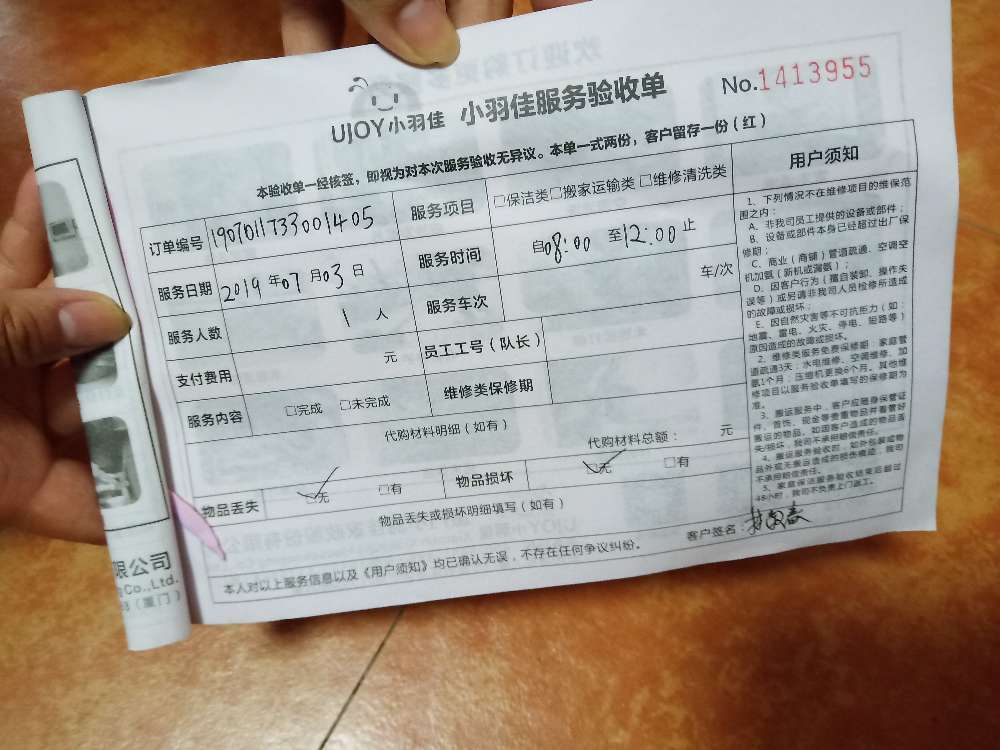 UJOY小羽佳 小羽佳服务验收单 No.1413955
本验收单一经核签，即视为对本次服务验收无异议。本单一式两份，客户留存一份（红）
订单编号 1907011733001405 服务项目 □保洁类□搬家运输类 □维修清洗类
服务日期 2019 年 07 月 03 日 服务时间 自08:00 至12:00 止
服务人数 1 人 服务车次 车/次
支付费用 元 员工工号（队长）
服务内容 □完成 □未完成 维修类保修期
代购材料明细（如有） 代购材料总额： 元
物品丢失 ☑无 □有 物品损坏 ☑无 □有
物品丢失或损坏明细填写（如有）
本人对以上服务信息以及《用户须知》均已确认无误，不存在任何争议纠纷。 客户签名：
用户须知
1、下列情况不在维修项目的维保范
围之内：
A、非我司员工提供的设备或部件；
B、设备或部件本身已经超过出厂保
修期；
C、商业（商铺）管道疏通、空调空
机加氨（新机或漏氨）；
D、因客户行为（擅自装卸、操作失
误等）或另请非我司人员检修所造成
的故障或损坏；
E、因自然灾害等不可抗拒力（如：
地震、雷电、火灾、停电、短路等）
原因造成的故障或损坏。
2、维修类服务免费保修期：家庭管
道疏通3天；水电维修、空调维修、加
氨1个月；压缩机更换6个月。其他维
修项目以服务验收单填写的保修期为
准。
3、搬运服务中，客户应随身保管证
件、首饰、现金等贵重物品并看管好
搬运的物品。如因客户造成的物品丢
失/损坏，我司不承担赔偿责任。
4、搬运服务验收时，如外包装或物
品外观无搬运造成的损伤痕迹，我司
不承担赔偿责任。
5、家庭保洁服务验收结束后超过
48小时，我司不负责上门返工。
限公司
Co.,Ltd.
（厦门）